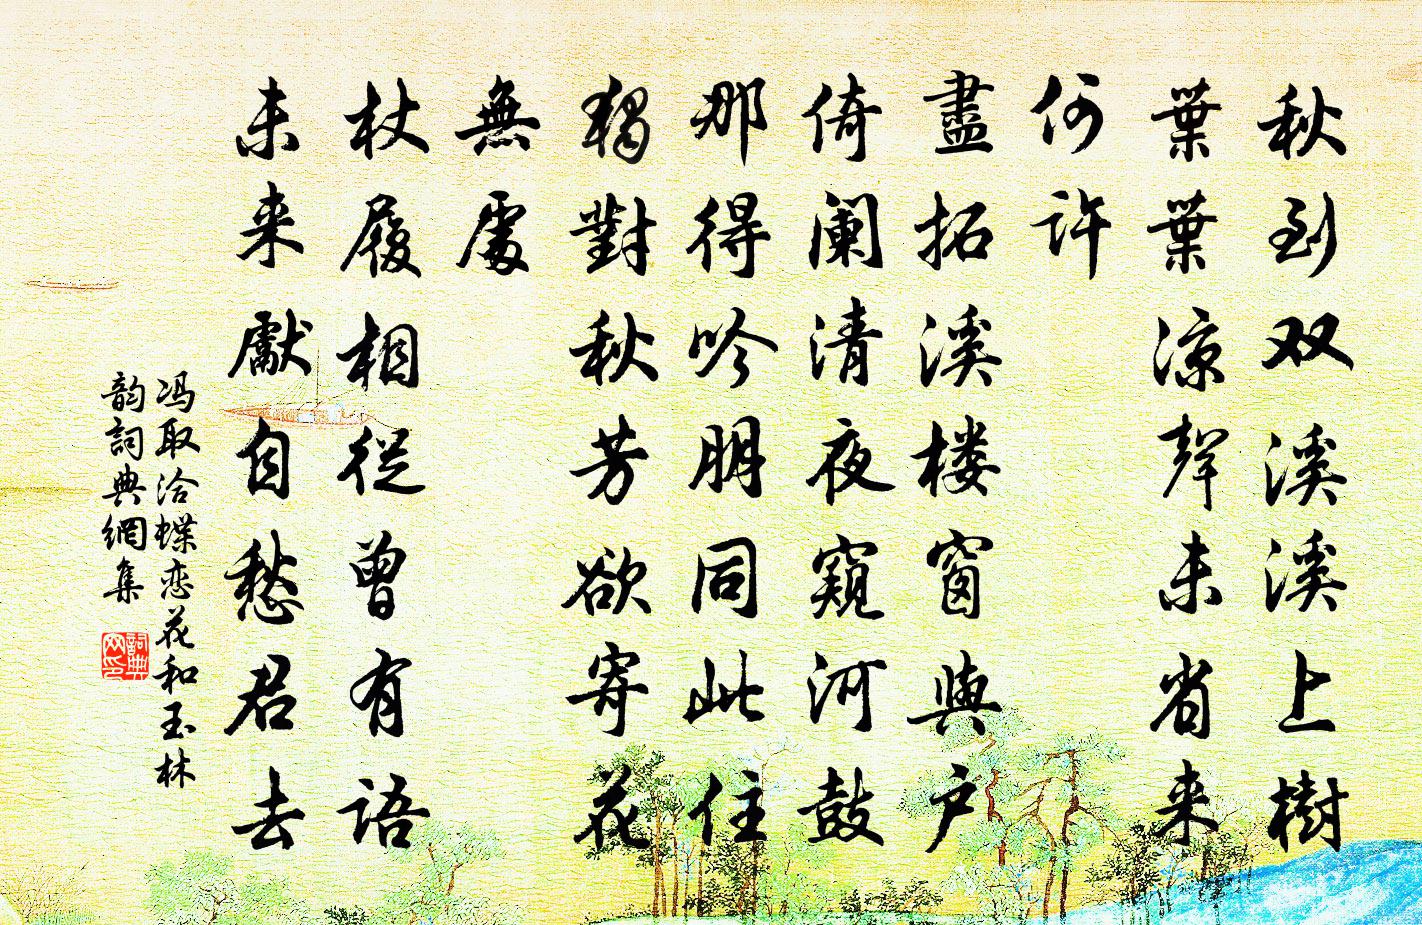 秋到双溪溪上樹
葉葉凉聲未省来
何許
盡拓溪楼窗與户
倚阑清夜窺河鼓
那得吟朋同此住
獨對秋芳欲寄花
無處
杖履相從曾有語
未来獻自愁君去
冯取洽蝶恋花和玉林
韵詞典網集
詞典网印